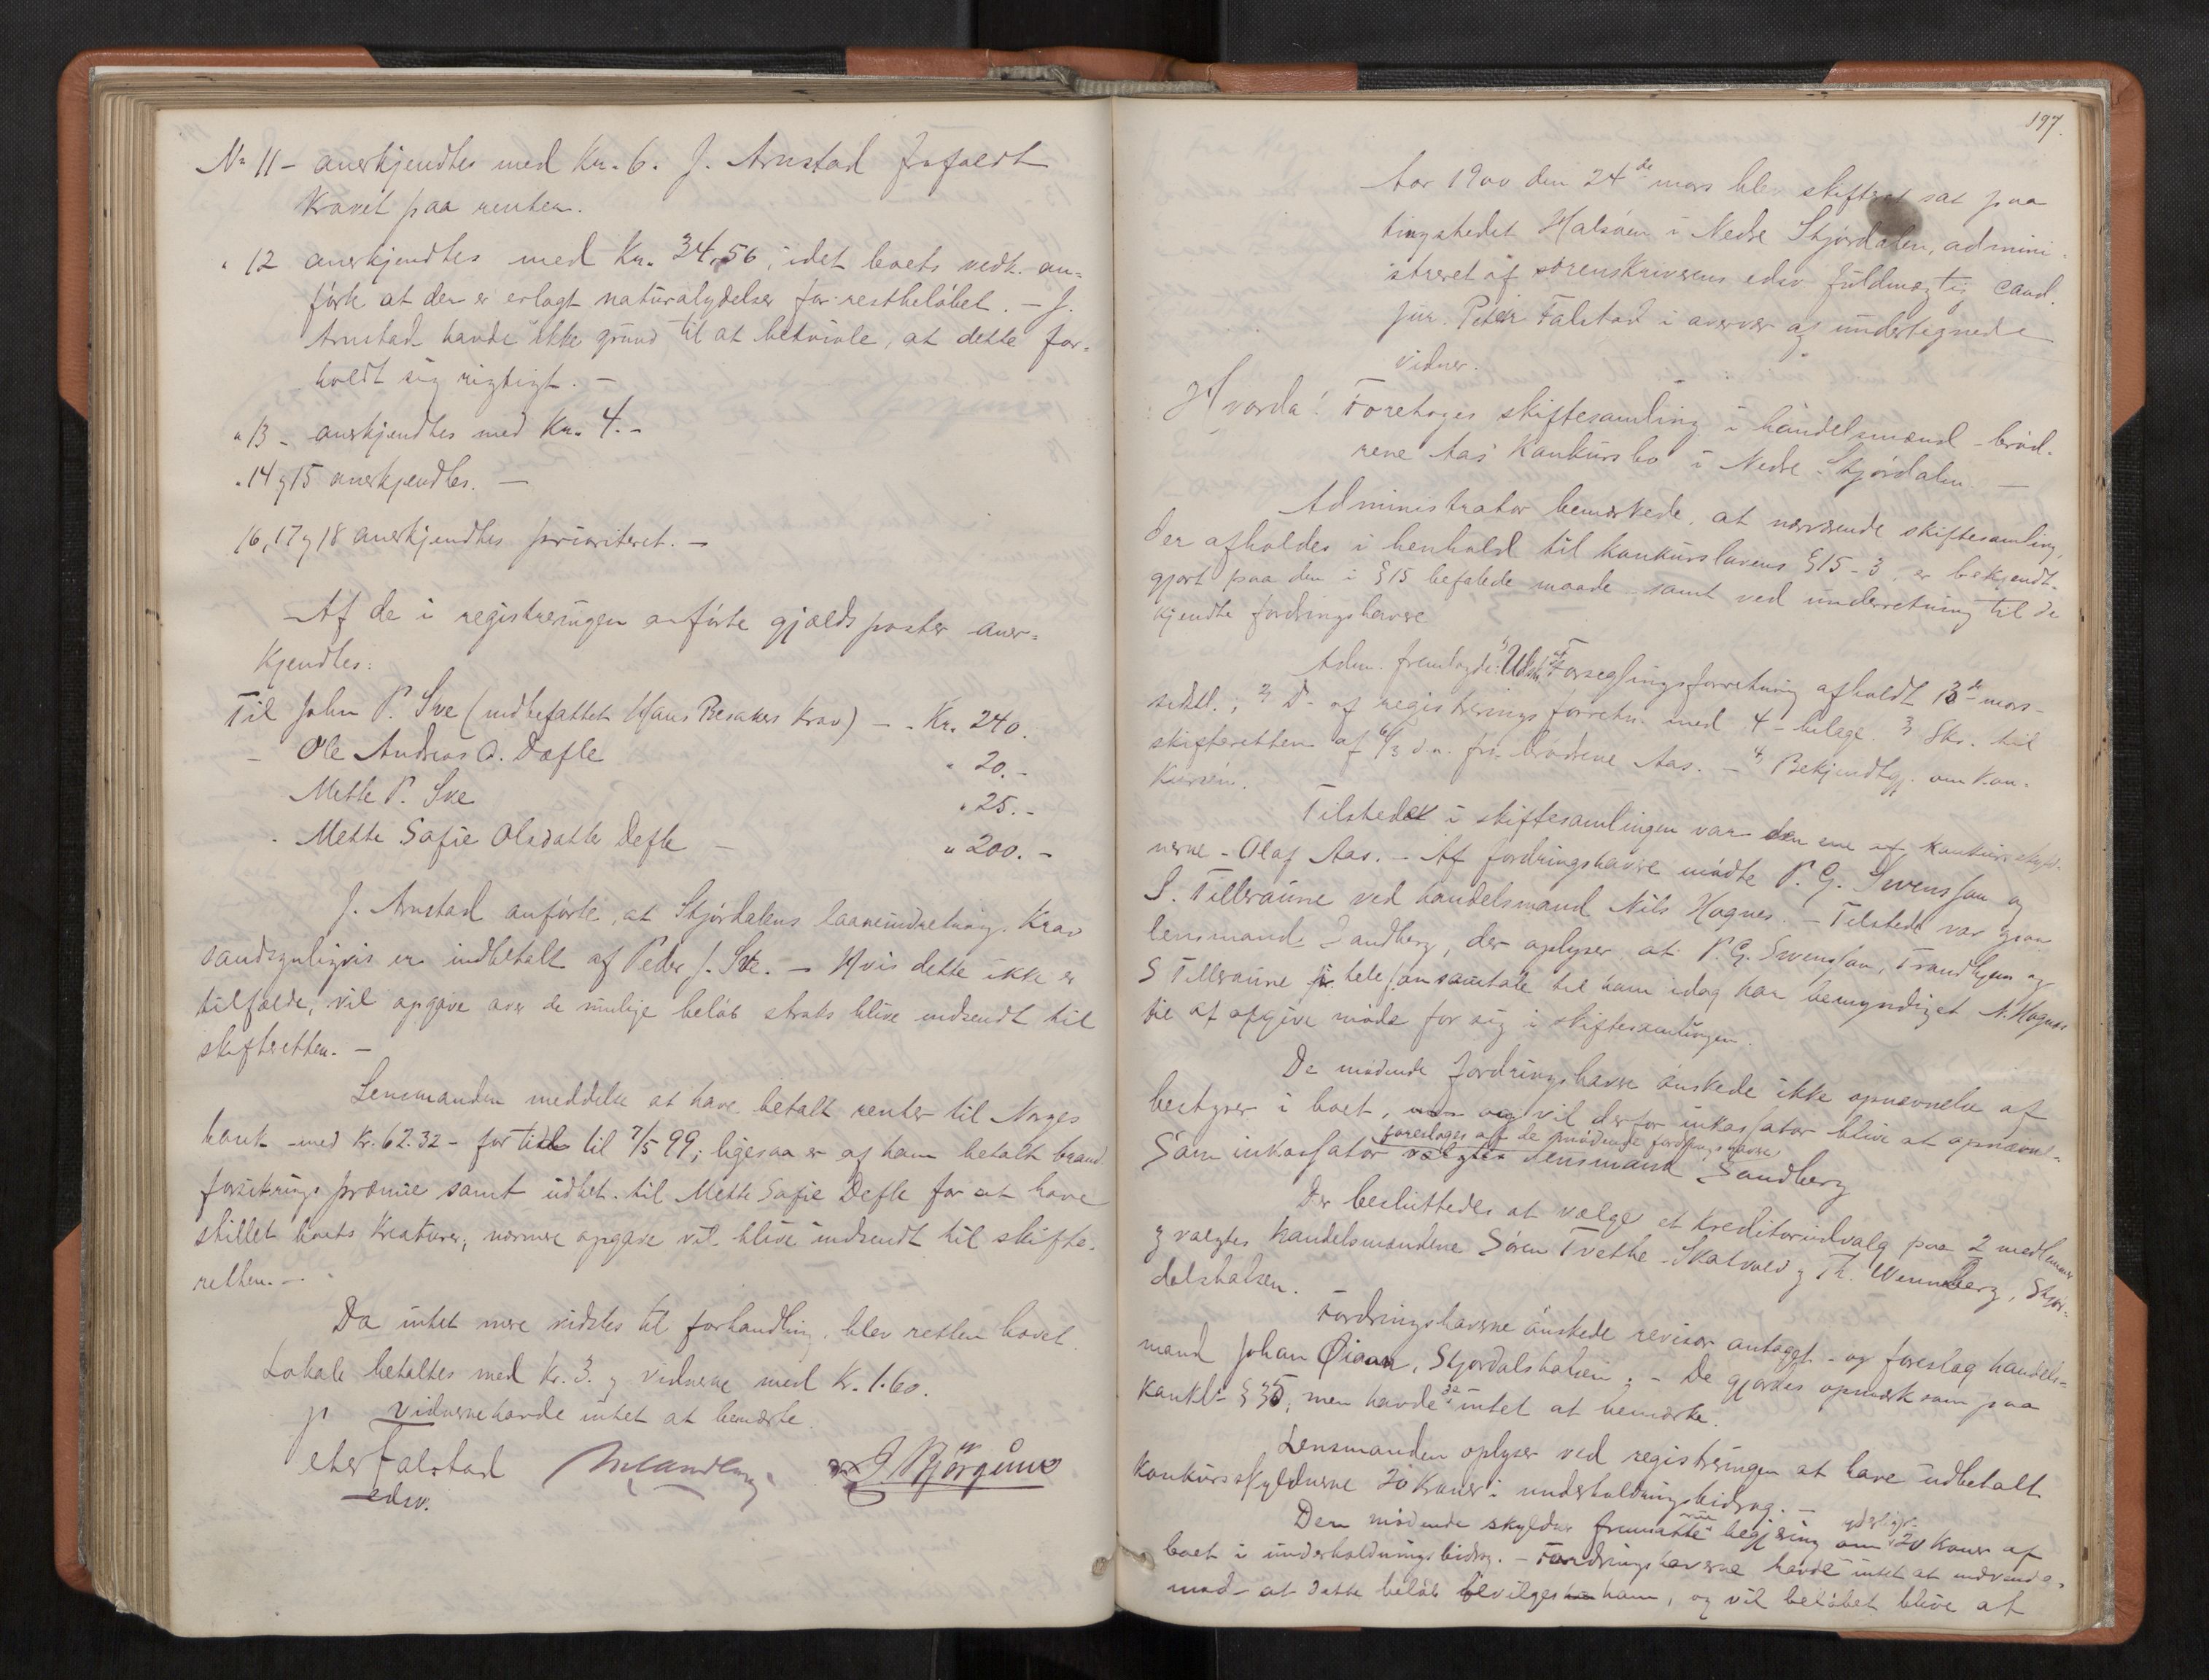 No 11 - anerkjendtes med Kr. 6. J. Arnstad frafaldt
Kravet paa renten.
" 12 anerkjendtes med Kr. 34,56, idet boets vedk. an=
førte at der er erlagt naturalydelser for restbeløbet. - J.
Arnstad havde ikke grund til at betvivle, at dette for=
holdt sig rigtigt. -
" 13 - anerkjendtes med Kr. 4. -
" 14 og 15 anerkjendtes. -
16, 17 og 18 anerkjendtes prioriteret. -
Af de i registreringen anførte gjældsposter aner=
kjendtes:
Til John P. Sve (indbefattet Hans Resakers Krav) - - Kr. 240.
- Ole Andreas O. Dæfle " 20. -
Mette P. Sve " 25. -
- Mette Sofie Olsdatter Defle - " 200. -
J. Arnstad anførte, at Stjørdalens laaneindretning. Krav
sandsynligvis er indbetalt af Peder J. Sve. - Hvis dette ikke er
tilfælde, vil opgave over de mulige beløb straks blive indsendt til
skifteretten. -
Lensmanden meddelte at have betalt renter til Norges
bank med Kr. 62.32 - for tiden til 7/5 99; ligesaa er af ham betalt brand
forsikringspræmie samt udbet. til Mette Sofie Defle for at have
stillet boets kreaturer; nærmere opgave vil blive indsendt til skifte-
retten. -
Da intet mere vidstes til forhandling, blev retten hævet.
Lokale betaltes med Kr. 3. og vidnerne med Kr. 1.60.
Vidnerne havde intet at bemærke.
Peter Falstad
edsv.
197.
Aar 1900 den 24de mars blev skifteret sat paa
tingstedet Halsøen i Nedre Stjørdalen, admini-
streret af sorenskriverens edsv. fuldmægtig cand.
jur. Peter Falstad i overvær af undertegnede
vidner.
Hvorda! Foretoges skiftesamling i handelsmænd - brød-
rene Aas' konkursbo i Nedre Stjørdalen -
Administrator bemærkede, at nærværende skiftesamling,
der afholdes i henhold til konkurslovens § 15 - 3, er bekjendt-
gjort paa den i § 15 befalede maade samt ved underretning til de
kjendte fordringshavere
Adm. fremlagde: 1) Udskr. af Forseglingsforretning afholdt 13de mars
sidstl.; 2) D- af registreringsforretn. med 4 - bilage. 3) Skr. til
skifteretten af 6/3 d.a. fra brødrene Aas. - 4) Bekjendtgj. om kon-
kursen.
Tilstede i skiftesamlingen var den ene af konkursskyld-
nerne - Olaf Aas. - Af fordringshavere mødte P. G. Svensson og
S. Tilleraune ved handelsmand Nils Hognes. - Tilstede var ogsaa
lensmand Sandberg, der oplyser at P. G. Svensson, Trondhjem og
S Tilleraune pr. telefonsamtale til ham idag har bemyndiget N. Hognes
til at afgive møde for sig i skiftesamlingen.
De mødende fordringshavere ønskede ikke opnævnelse af
bestyrer i boet, og vil derfor inkassator blive at opnævn-
foreslages af de mødende fordringshavere
Som inkassator vælges lensmand Sandberg
Der besluttedes at vælge et kreditorudvalg paa 2 medlemmer
og valgtes handelsmændene Søren Tvethe - Skatvald og Th. Wenneberg, Stjør-
dalshalsen.
Fordringshaverne ønskede revisor antaget - og foreslog handels=
mand Johan Øiaan, Stjørdalshalsen. - De gjordes opmærksom paa
konkl. § 35, men havde intet at bemærke.
Lensmanden oplyser ved registreringen at have udbetalt
konkursskyldnerne 20 kroner i underholdningsbidrag. -
Den mødende skyldner fremsatte begjæring om yderligere 20 kroner af
boet i underholdningsbidrag. - Fordringshaverne havde intet at indvende
mod at dette beløb bevilges ham, og vil beløbet blive at